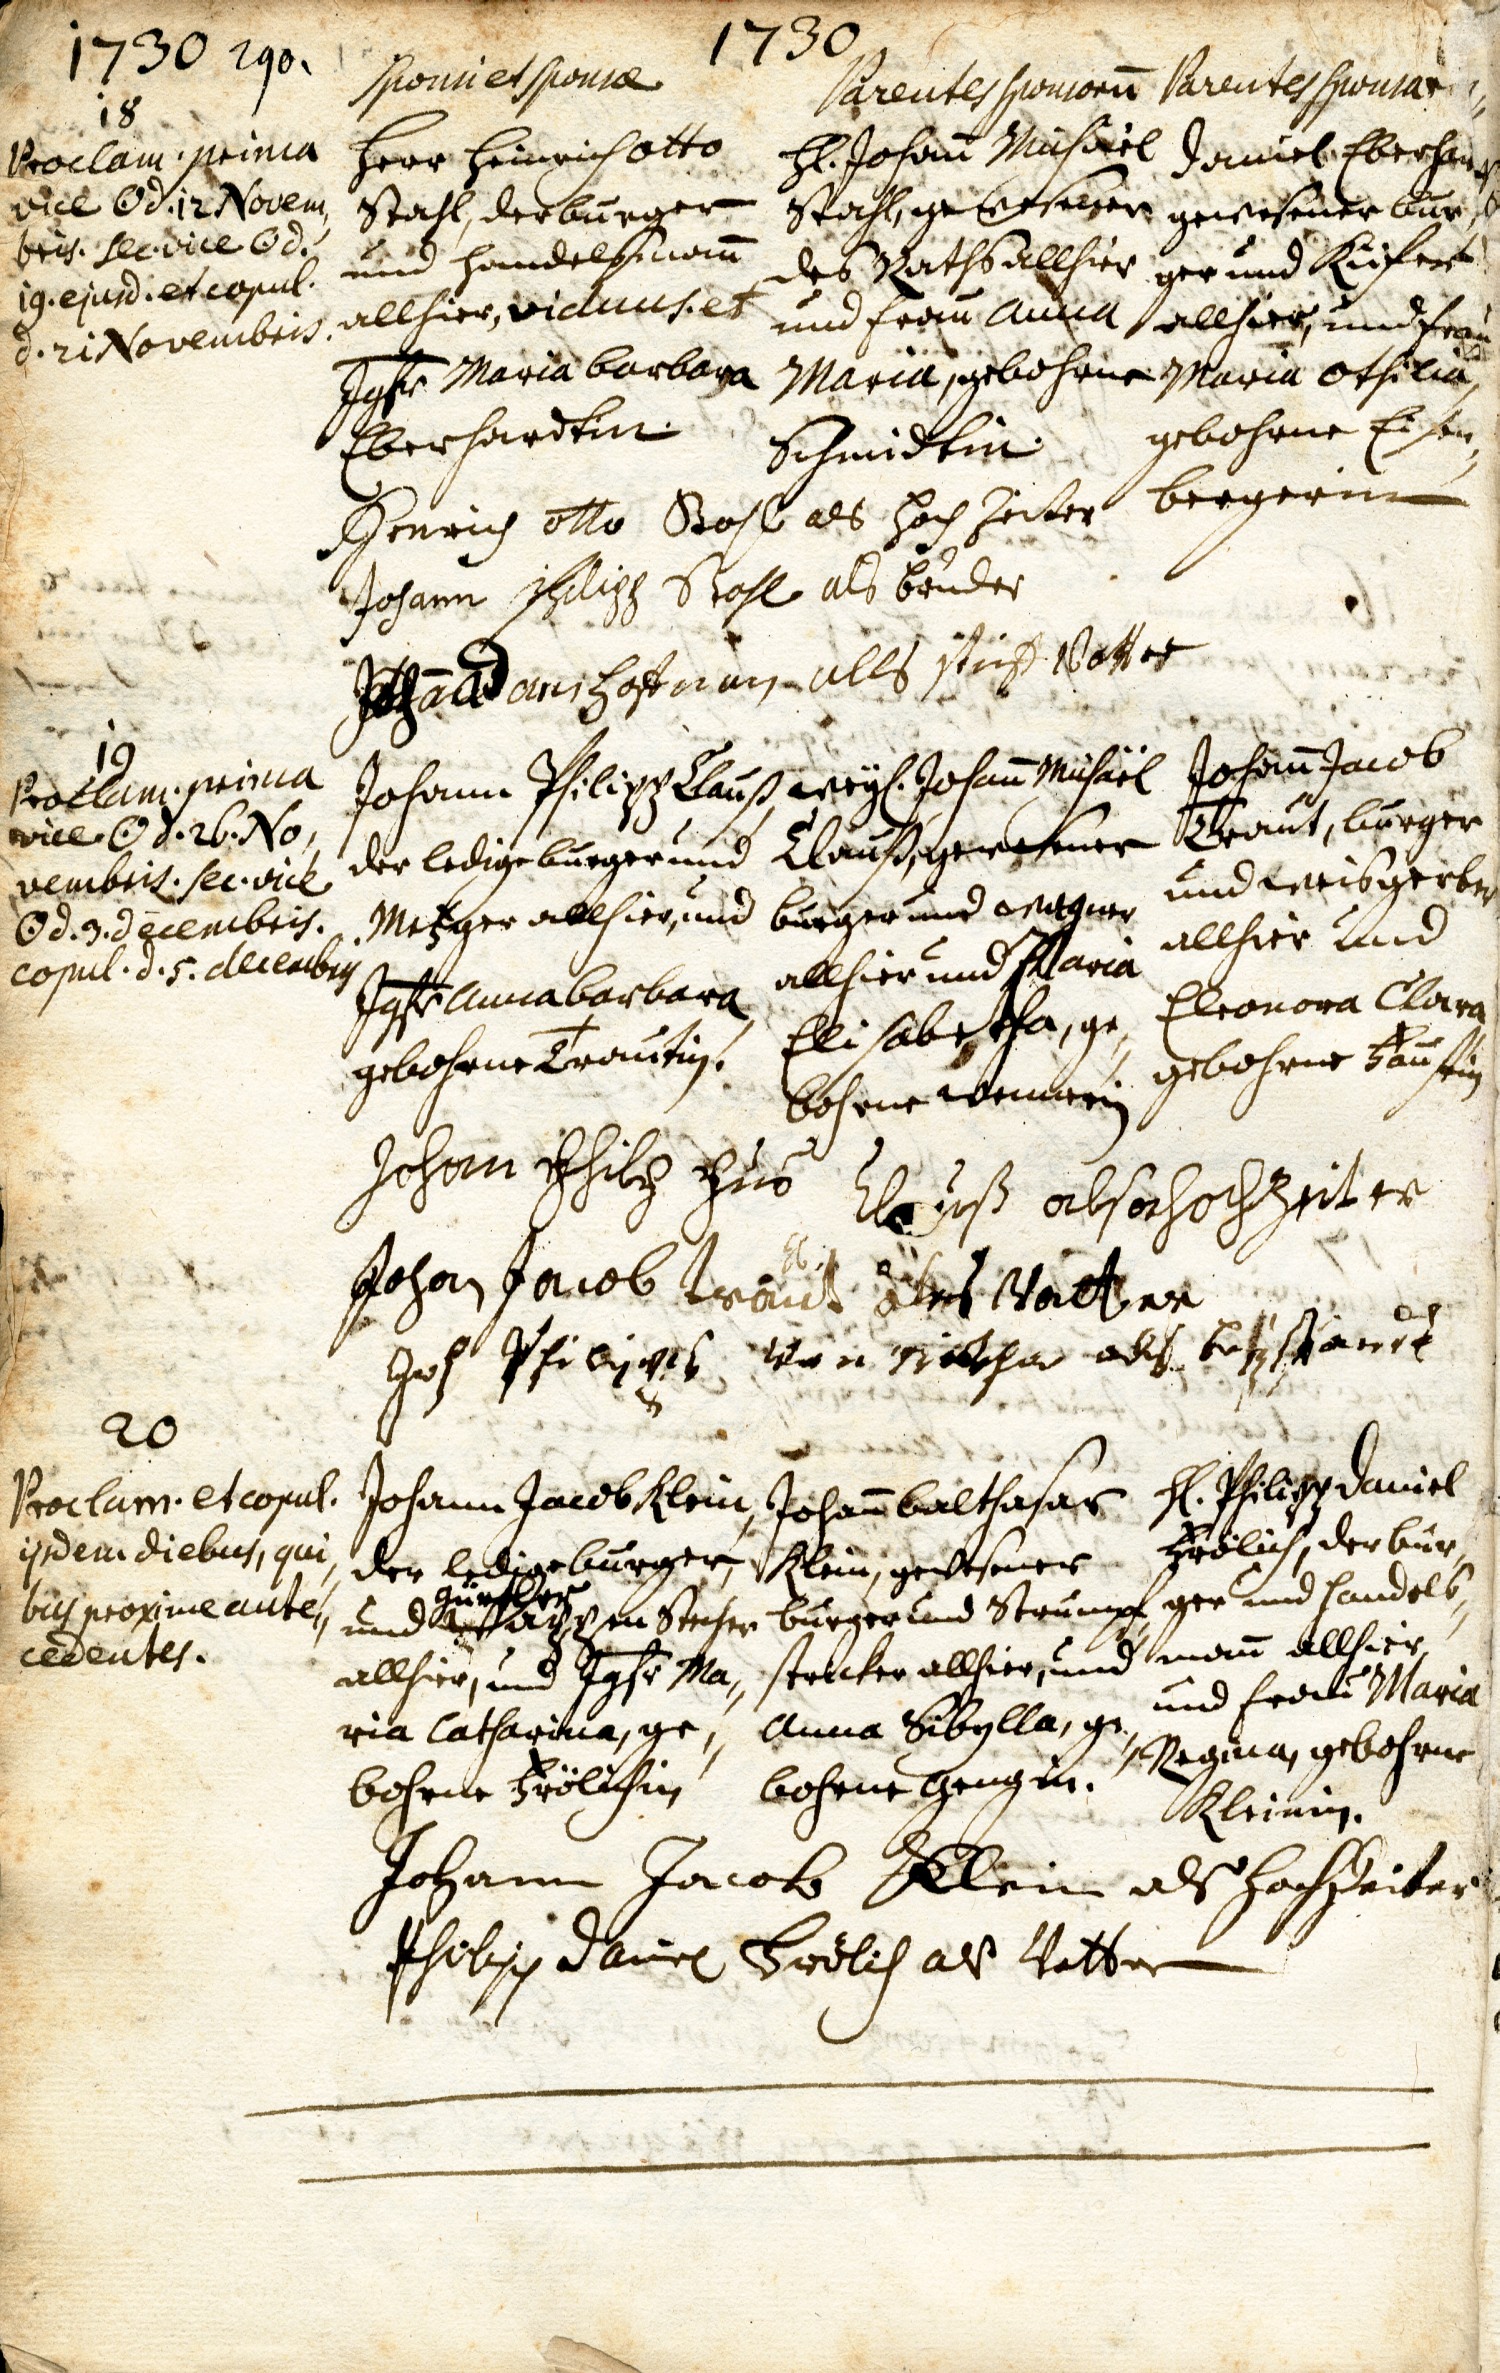 1730 290.
1730
Sponsi et Sponsæ
Parentes Sponsorū
Parentes Sponsar
18
Proclam. prima
vice ☉ d. 12 Novem„
bris. sec. vice ☉ d.
19. ejusd. et copul.
d. 21 Novembris.
Herr Heinrich Otto
Stahl, der burger
und handelsmañ
allhier, viduus. et
Jgfr Maria barbara
Eberhardtin.
H. Johañ Michäel
Stahl, gewesener
des Raths allhier
und frau Anna
Maria, gebohrne
Schmidtin.
Daniel Eberhard
gewesener bur„
ger und Kiefer
allhier, und frau
Maria Othilia,
gebohrne Eisen„
bergerin
Henrich otto Stahl als hoch Zeiter
Johann philipp Stahl als bruder
hofman alls stief Vatter
19
Proclam. prima
vice ☉ d. 26. No„
vembris. sec. vice
☉ d. 3. decembris.
copul. d. 5. decembris
Johann Philipp Clauß,
der ledige burger und
Metzger allhier, und
Jgfr Anna barbara
gebohrne Trautin.
weyl. Johañ Michäel
Clauß, gewesener
burger und wagner
allhier und Maria
Elisabetha, ge„
bohrne
Johañ Jacob
Traut, burger
und weisgerber
allhier und
Eleonora Clara
gebohrne Faustin
Johan Philip Clauß als hochzeiter
Johan Jacob Traut als Vatter
Joh Philips als beystandt
20
Proclam. et copul.
ijsdem diebus, qui„
bus proxime ante„
cedentes.
Johann Jacob Klein,
der ledige burger,
gürtler
und Wappen Stecher
allhier, und Jgfr Ma„
ria Catharina, ge„
bohrne Frölichin
Johañ balthasar
Klein, gewesener
burger und Strumpf„
stricker allhier, und
Anna Sibylla, ge„
bohrne Gengin.
H. Philipp Daniel
Frölich, der bur„
ger und handels„
mañ allhier,
und frau Maria
Regina, gebohrne
Kleinin.
Johann Jacob Klein als Hochzeiter
Philipp Daniel Frölich als Vatter